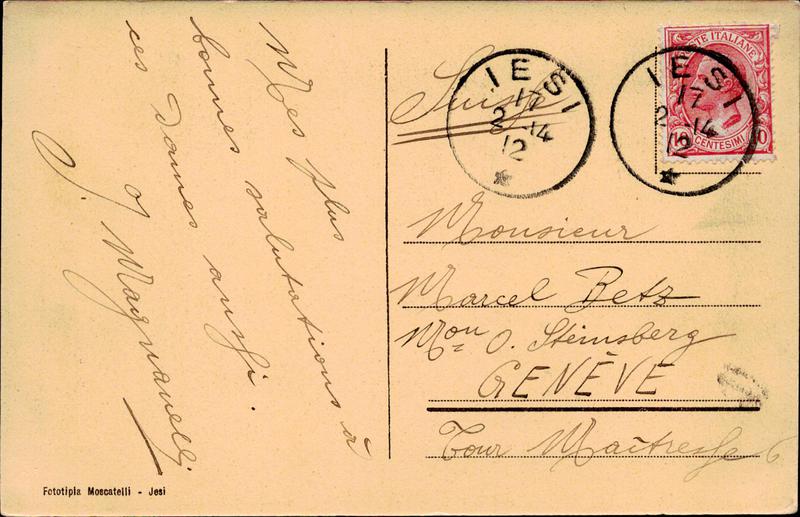 Mes plus
bonnes salutations à
ces Dames aussi.
J. Magnanelli
Fototipia Moscatelli - Jesi
Suisse
IESI
17
2 - 14
12
IESI
17
2 - 14
12
POSTE ITALIANE
10 CENTESIMI 10
Monsieur
Marcel Betz
Mon O. Steinsberg
GENÈVE
Tour Maîtresse 6